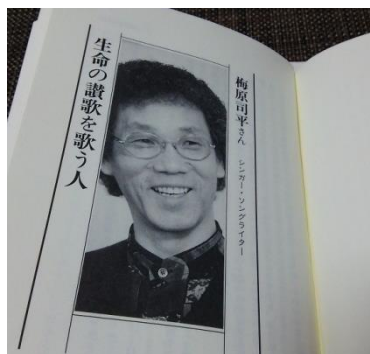 梅原司平さん シンガー・ソングライター
生命の讃歌を歌う人